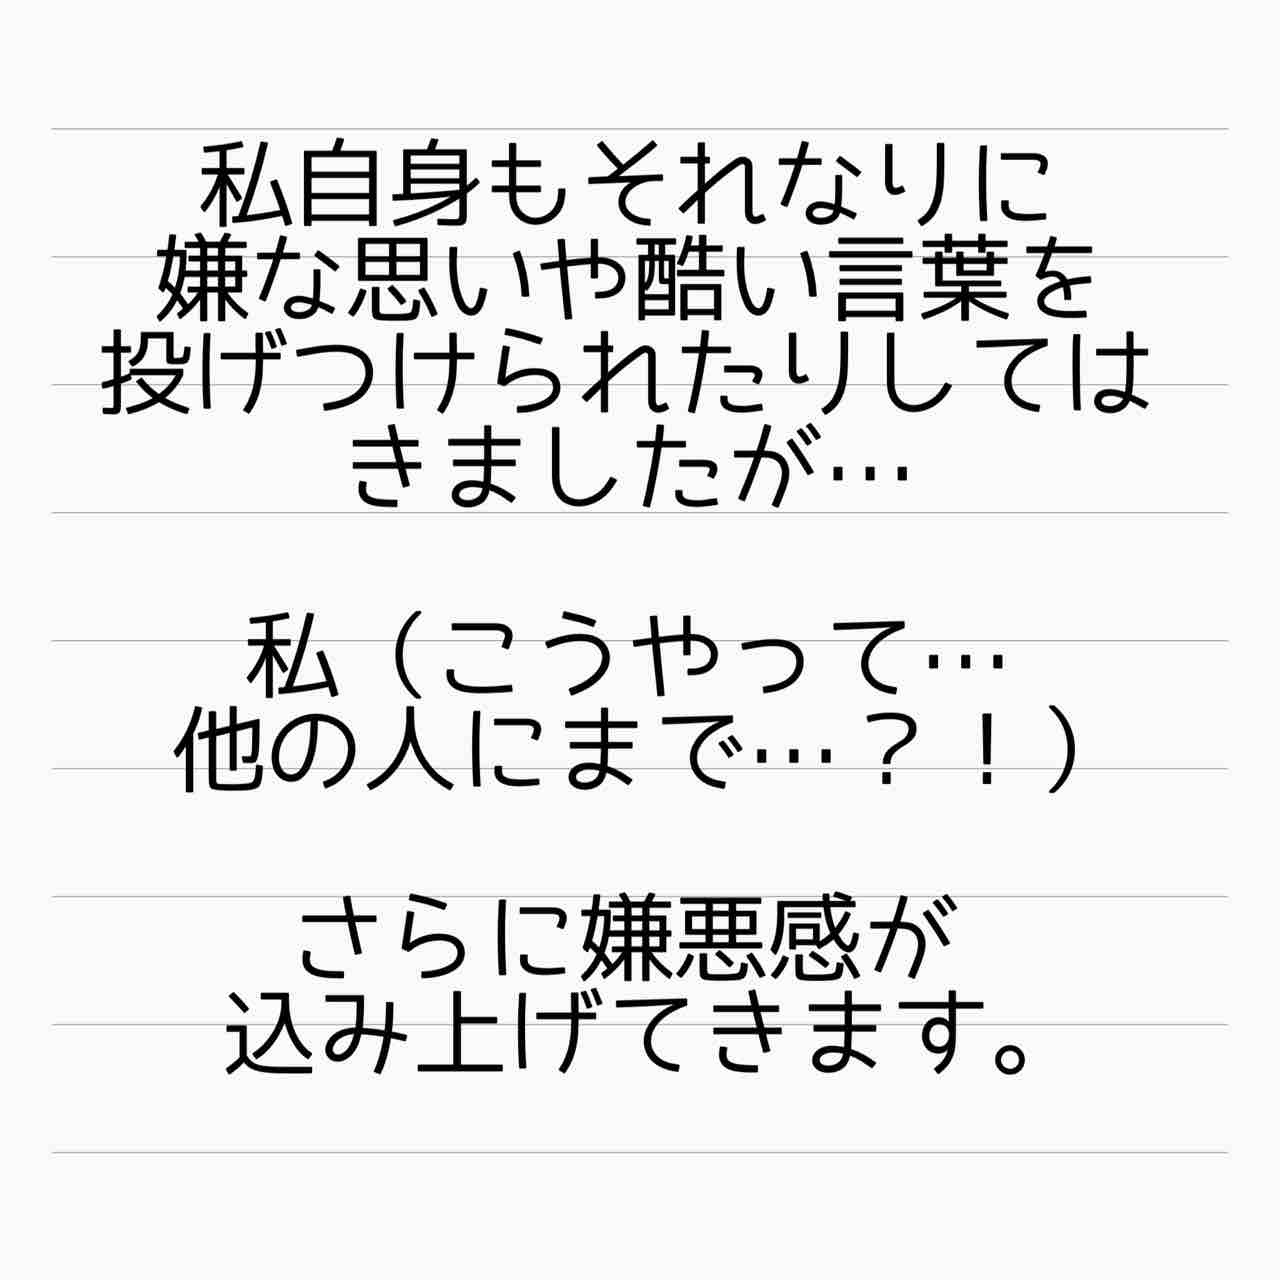 私自身もそれなりに
嫌な思いや酷い言葉を
投げつけられたりしては
きましたが…
私（こうやって…
他の人にまで…？！）
さらに嫌悪感が
込み上げてきます。